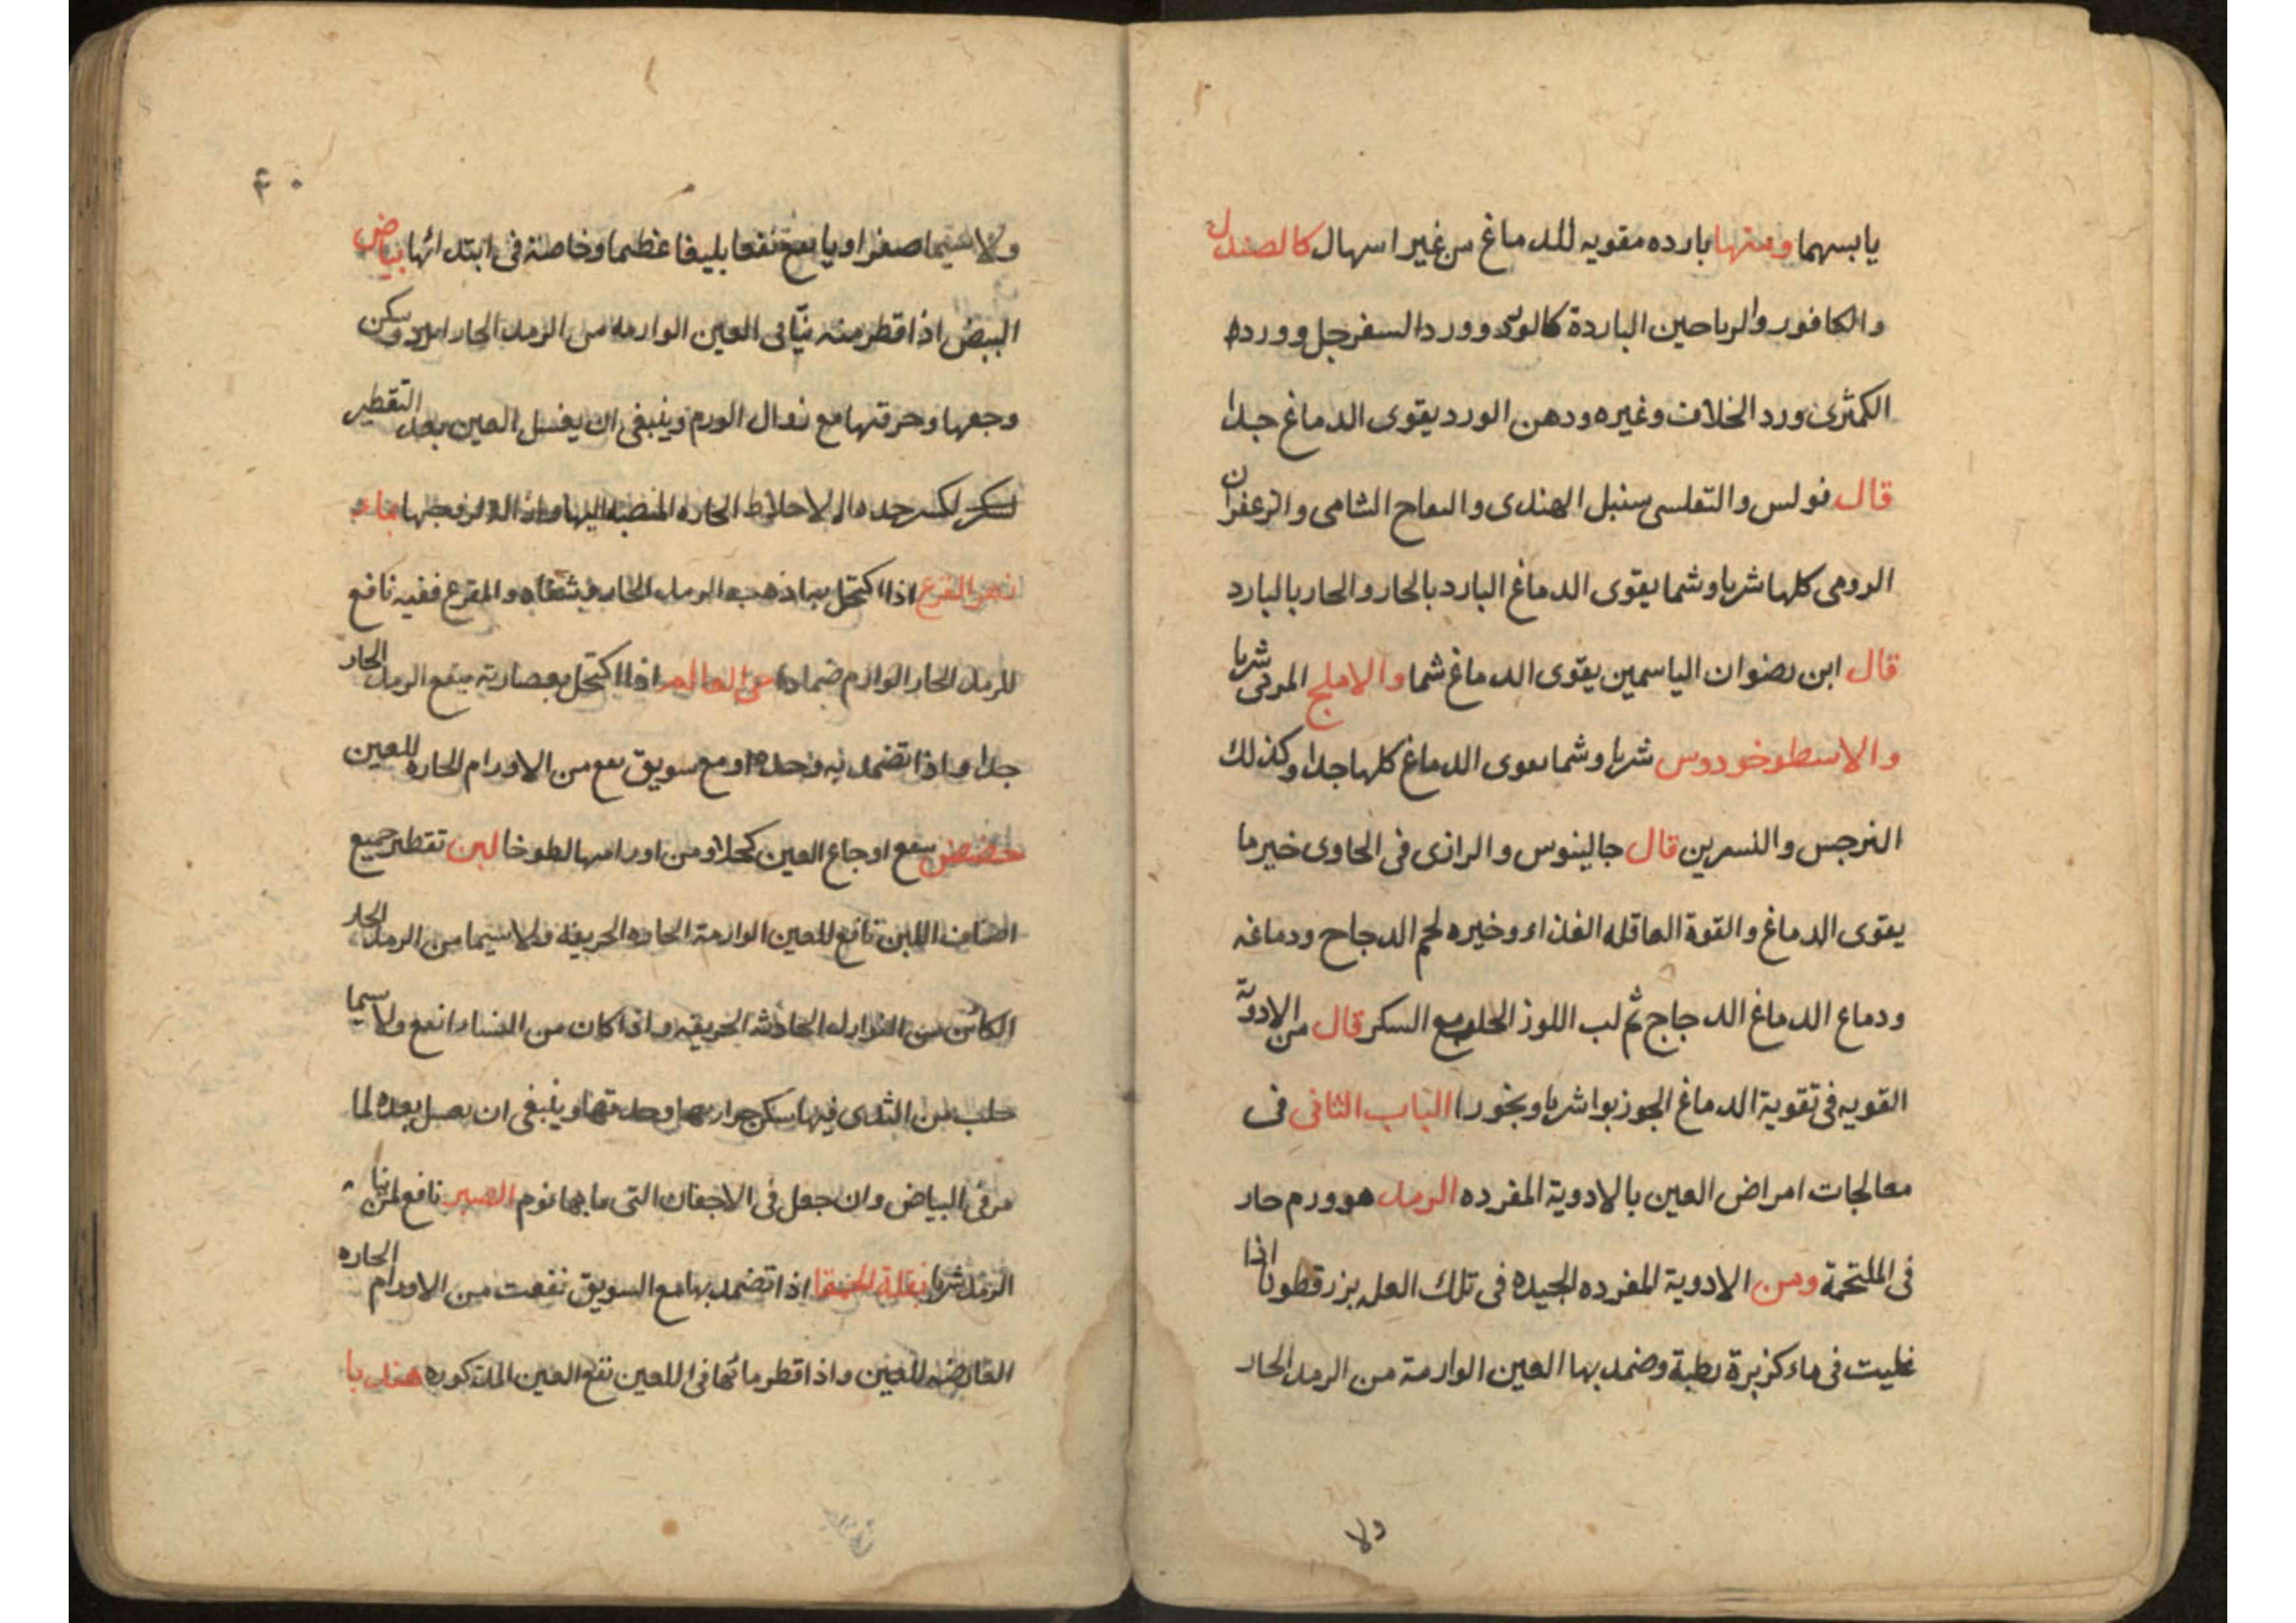 يابسهما ومنها بارده مقويه للدماغ من غير اسهال كالصندل
والكافور والرياحين الباردة كالورد وورد السفرجل وورده
الكمثرى ورد الخلاف وغيره ودهن الورد يقوى الدماغ جدا
قال فولس والتفلسى سنبل الهندى والتفاح الشامى والزعفران
الرومى كلها شربا وشما يقوى الدماغ البارد بالحار والحار بالبارد
قال ابن رضوان الياسمين يقوى الدماغ شما والاملج المربى شربا
والاسطوخودوس شربا وشما يقوى الدماغ كلها جدا وكذلك
النرجس والنسرين قال جالينوس والرازى فى الحاوى خير ما
يقوى الدماغ والقوة العاقله الغذاء وخيره لحم الدجاج ودماغه
ودماع الدماغ الدجاج ثم لب اللوز الحلو مع السكر قال من الادوية
القويه فى تقوية الدماغ الجوز بوا شربا وبخورا الباب الثانى فى
معالجات امراض العين بالادوية المفرده الرمد هو ورم حار
فى الملتحمة ومن الادوية المفرده الجيده فى تلك العله بزر قطونا اذا
غليت فى ماء كزبرة رطبة وضمد بها العين الوارمة من الرمد الحار
ولا
٤٠
ولا سيما صفراويا ينفع نفعا بليغا عظيما وخاصة فى ابتدائها بياض
البيض اذا قطر منه نيّا فى العين الوارمه من الرمد الحار ابرد وسكن
وجعها وحرقتها مع زوال الورم وينبغى ان يغسل العين بعد التقطير
لكسر حده الاخلاط الحاره المنصبه اليها بماء
زهر القرع اذا اكتحل بها ذهب الرمد الحار والقرع ففيه نافع
للرمد الحار الوارم ضمادا حى العالم اذا اكتحل بعصارته ينفع الرمد الحار
جدا واذا تضمد به وحده او مع سويق نفع من الاورام الحاره للعين
حضض ينفع اوجاع العين كحلا ومن اورامها لطوخا لبن تقطير جميع
اصناف اللبن نافع للعين الوارمة الحاره الحريفه ولا سيما من الرمد الحار
الكائن من النوازل الحادثه الحريقيه واذا كان من النساء انفع ولا سيما
حلب من الثدى فيها سكن حرارتها وحدتها وينبغى ان يغسل بعده لما
مر فى البياض وان جعل فى الاجفان التى ما بها نوم الصبر نافع لمن
الرمد شربا بقلة الحمقا اذا تضمد بها مع السويق نفعت من الاورام الحاره
العارضه للعين واذا قطر مائها فى العين نفع العين المذكوره هندبا